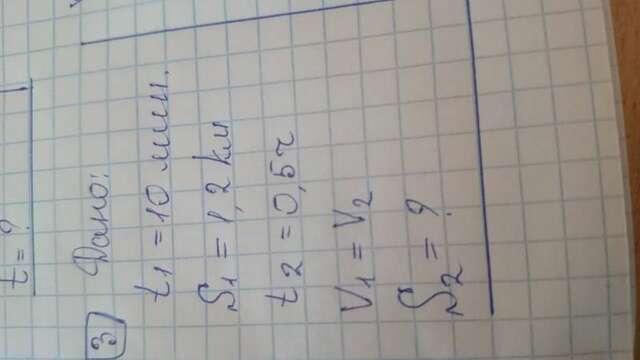 t = ?
3 Дано:
t1 = 10 мин.
S1 = 1,2 км
t2 = 0,5 ч
V1 = V2
S2 = ?